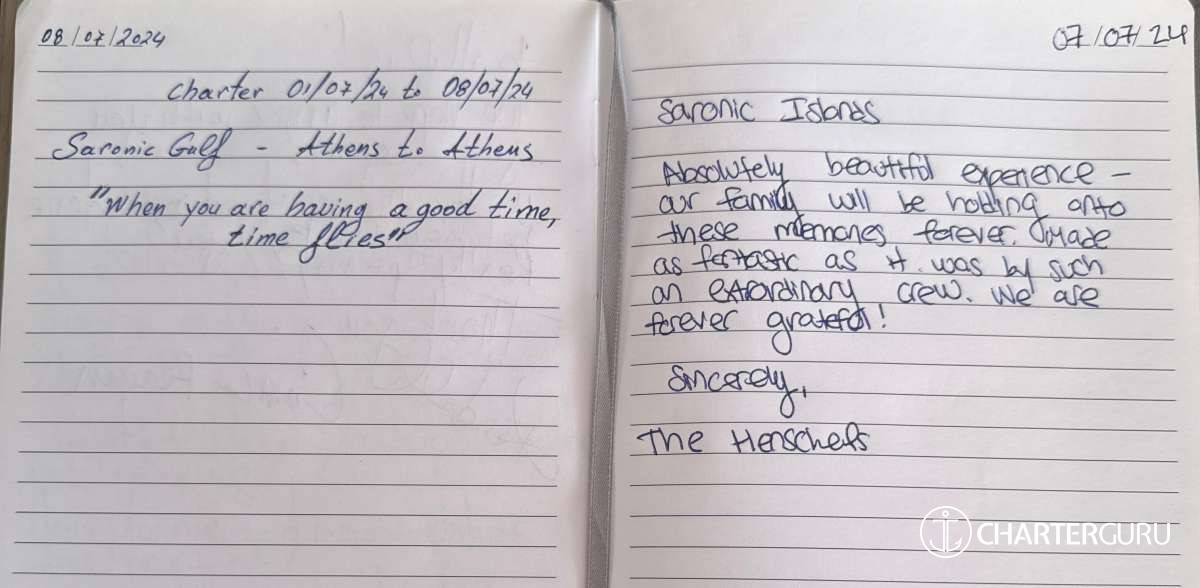 08/07/2024
Charter 01/07/24 to 08/07/24
Saronic Gulf - Athens to Athens
"When you are having a good time,
time flies"
07/07/24
Saronic Islands
Absolutely beautiful experience -
our family will be holding onto
these memories forever. Made
as fantastic as it was by such
an extraordinary crew. We are
forever grateful!
Sincerely,
The Henschels
CHARTERGURU